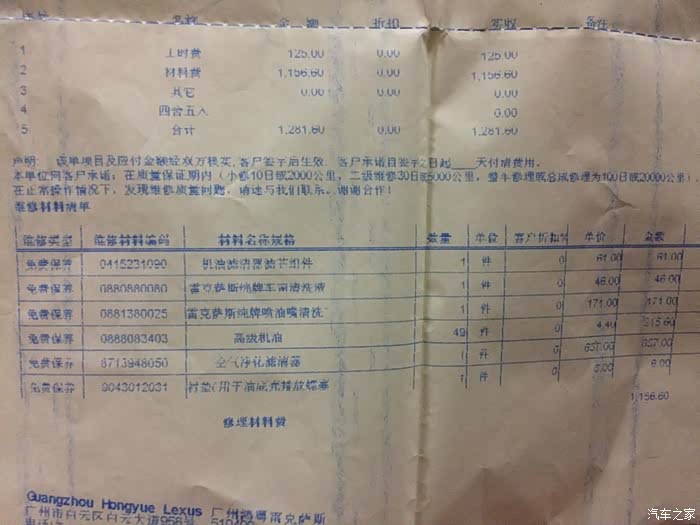 序号 名称 金额 折扣 实收 备注
1 工时费 125.00 0.00 125.00
2 材料费 1,156.60 0.00 1,156.60
3 其它 0.00 0.00 0.00
4 四舍五入 0.00
5 合计 1,281.60 0.00 1,281.60
声明: 该单项目及应付金额经双方核实,客户签字后生效. 客户承诺自签字之日起____天付清费用。
本单位向客户承诺:在质量保证期内(小修10日或2000公里,二级维修30日或5000公里,整车修理或总成修理为100日或20000公里),
在正常操作情况下,发现维修质量问题,请速与我们联系。谢谢合作!
维修材料清单
维修类型 维修材料编码 材料名称规格 数量 单位 客户折扣% 单价 金额
免费保养 0415231090 机油滤清器滤芯组件 1 件 0 61.00 61.00
免费保养 0880880080 雷克萨斯纯牌车窗清洗液 1 件 0 46.00 46.00
免费保养 0881380025 雷克萨斯纯牌喷油嘴清洗 1 件 0 171.00 171.00
免费保养 0888083403 高级机油 49 件 0 4.40 215.60
免费保养 8713948050 空气净化滤清器 1 件 0 657.00 657.00
免费保养 9043012031 衬垫(用于油底壳排放螺塞 1 件 0 6.00 6.00
修理材料费 1,156.60
Guangzhou Hongyue Lexus 广州鸿粤雷克萨斯
广州市白云区白云大道958号
汽车之家